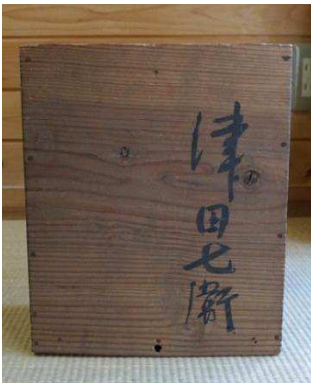 津田七衛